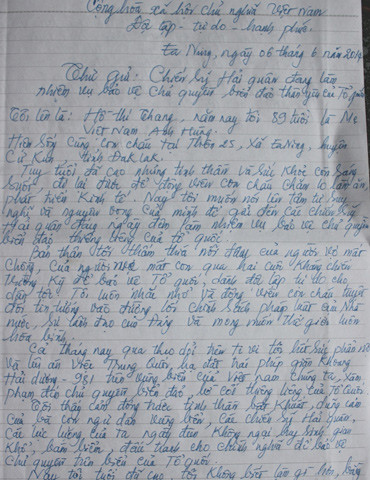 Cộng hòa xã hội chủ nghĩa Việt Nam
Độc lập - tự do - hạnh phúc.
Ea Ning, ngày 06 tháng 6 năm 2014
Thư gửi: Chiến sỹ Hải quân đang làm
nhiệm vụ bảo vệ chủ quyền biển đảo thân yêu của Tổ quốc
Tôi tên là: Hồ Thị Thang, năm nay tôi 89 tuổi là Mẹ
Việt Nam Anh Hùng.
Hiện sống cùng con cháu tại Thôn 25, Xã Ea Ning, huyện
Cư Kuin tỉnh Đak Lak.
Tuy tuổi đã cao nhưng tinh thần và sức khỏe còn sáng
suốt, để lại được để động viên con cháu chăm lo làm ăn,
phát triển kinh tế. Nay tôi muốn nói lên tâm tư suy
nghĩ và nguyện vọng của mình để gửi đến các chiến sỹ
Hải quân đang ngày đêm làm nhiệm vụ bảo vệ chủ quyền
biển đảo thiêng liêng của tổ quốc.
Bản thân tôi thấm thía nỗi đau của người vợ mất
chồng, của người mẹ mất con qua hai cuộc kháng chiến
trường kỳ để bảo vệ Tổ quốc, dành độc lập tự do cho
dân tộc. Tôi luôn nhắc nhở và động viên con cháu tuyệt
đối tin tưởng vào đường lối chính sách pháp luật của Nhà
nước, sự lãnh đạo của Đảng và mong muốn thế giới luôn
hòa bình.
Cả tháng nay qua theo dõi trên ti vi tôi hết sức phẫn nộ
và lên án việc Trung Quốc hạ đặt trái phép giàn khoan
Hải dương - 981 trên vùng biển của Việt Nam chúng ta, xâm
phạm đến chủ quyền biển đảo thiêng liêng của Tổ quốc.
Tôi thấy cảm động trước tinh thần bất khuất, dũng cảm
của bà con ngư dân vùng biển, các chiến sỹ Hải quân,
các lực lượng của ta ngày đêm không ngại hy sinh gian
khổ, bám biển, đấu tranh cho chính nghĩa để bảo vệ
chủ quyền trên biển của Tổ quốc.
Nay tôi tuổi đã cao, tôi không biết làm gì hơn, bằng